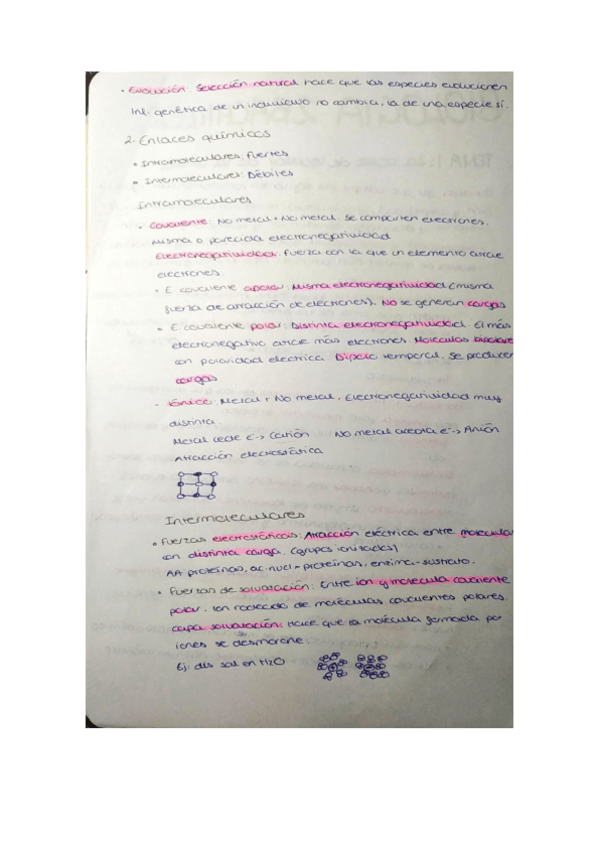 · Evolución: Selección natural hace que las especies evolucionen
Inf. genética de un individuo no cambia, la de una especie sí.
2. Enlaces químicos
• Intramoleculares: Fuertes
• Intermoleculares: Débiles
Intramoleculares
• Covalente: No metal + No metal. Se comparten electrones.
Misma o parecida electronegatividad
Electronegatividad: Fuerza con la que un elemento atrae
electrones.
• E. covalente apolar: Misma electronegatividad (misma
fuerza de atracción de electrones). No se generan cargas
• E. covalente polar: Distinta electronegatividad. El más
electronegativo atrae más electrones. Moléculas
con polaridad eléctrica. Dipolo temporal. Se producen
cargas
- Iónico: Metal + No metal, Electronegatividad muy
distinta.
Metal cede e⁻-> Catión No metal acepta e⁻-> Anión
Atracción electrostática
Intermoleculares
• Fuerzas electrostáticas: Atracción eléctrica entre molécula
con distinta carga. (grupos ionizados)
AA proteínas, ac. nucl - proteínas, enzima-sustrato.
• Fuerzas de solvatación: Entre ion y molécula covalente
polar. Ion rodeado de moléculas covalentes polares.
capa solvatación: Hace que la molécula formada por
iones se desmorone.
Ej: dis sal en H2O